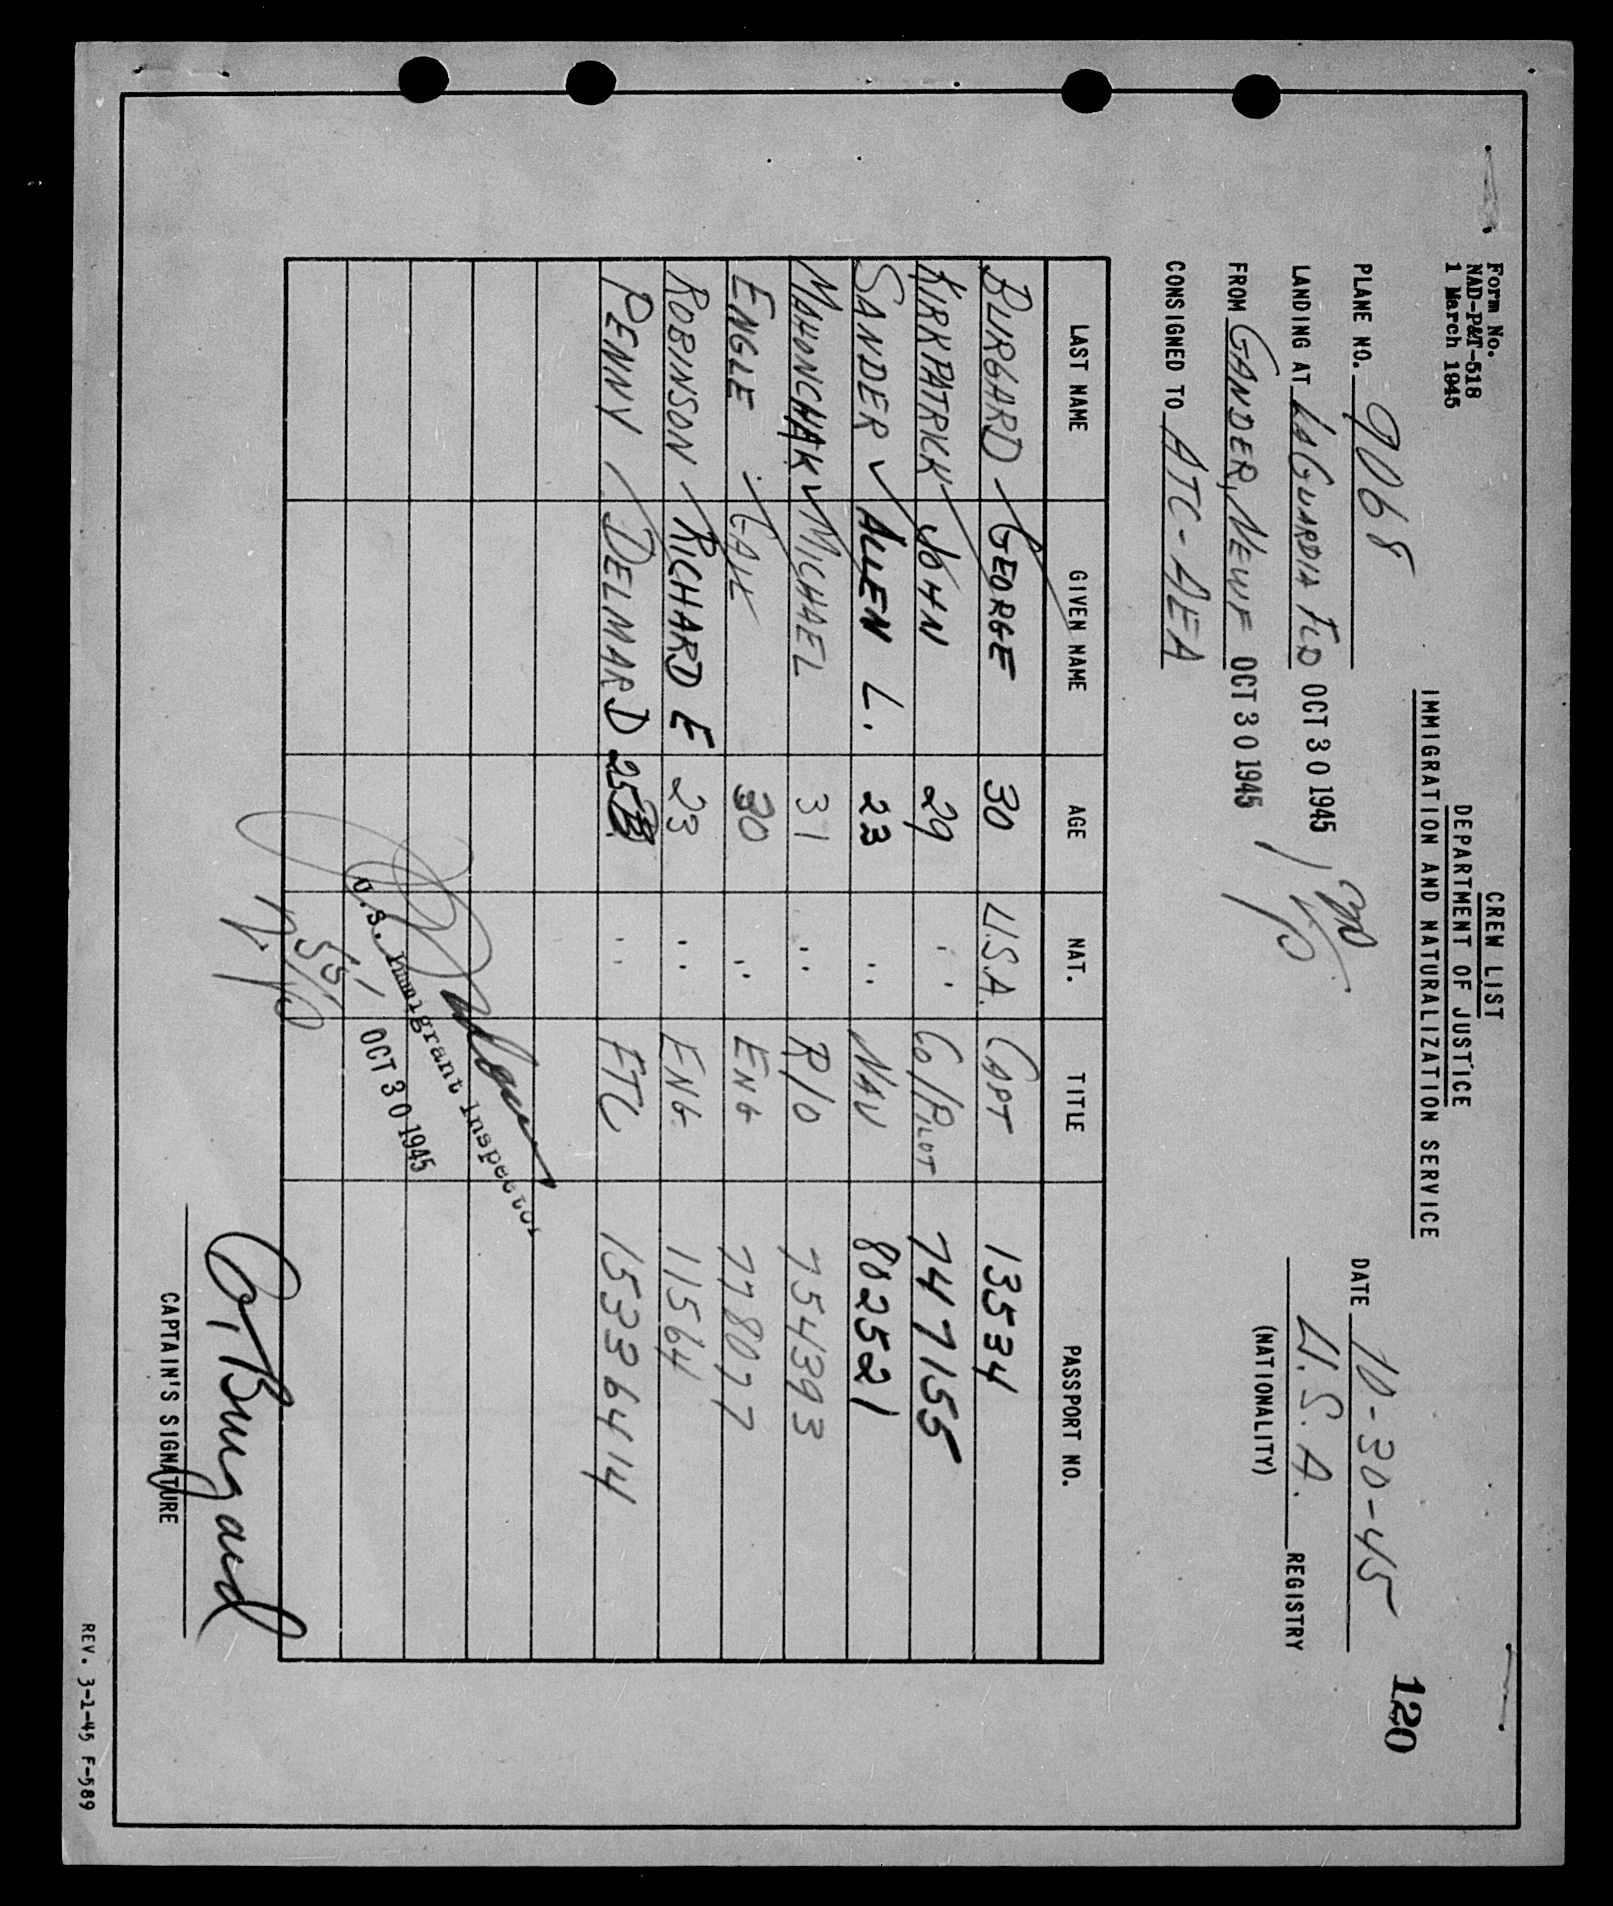 Form No.
NAD-P&T-518
1 March 1945
CREW LIST
DEPARTMENT OF JUSTICE
IMMIGRATION AND NATURALIZATION SERVICE
120
PLANE NO. 9068
DATE 10-30-45
LANDING AT LAGUARDIA FLD OCT 30 1945
U.S.A. REGISTRY
(NATIONALITY)
FROM GANDER, NEWF OCT 30 1945
CONSIGNED TO ATC-AEA
LAST NAME GIVEN NAME AGE NAT. TITLE PASSPORT NO.
BURGARD GEORGE 30 U.S.A. CAPT 13534
KIRKPATRICK JOHN 29 " CO/PILOT 747155
SANDER ALLEN L. 23 " NAV 802521
MAHONCHAK MICHAEL 31 " R/O 754393
ENGLE 30 " ENG 778077
ROBINSON RICHARD E 23 " ENG. 11564
PENNY DELMAR D 25 " FTC 15336414
U.S. Immigrant Inspector
OCT 30 1945
G. Burgard
CAPTAIN'S SIGNATURE
REV. 3-1-45 F-589